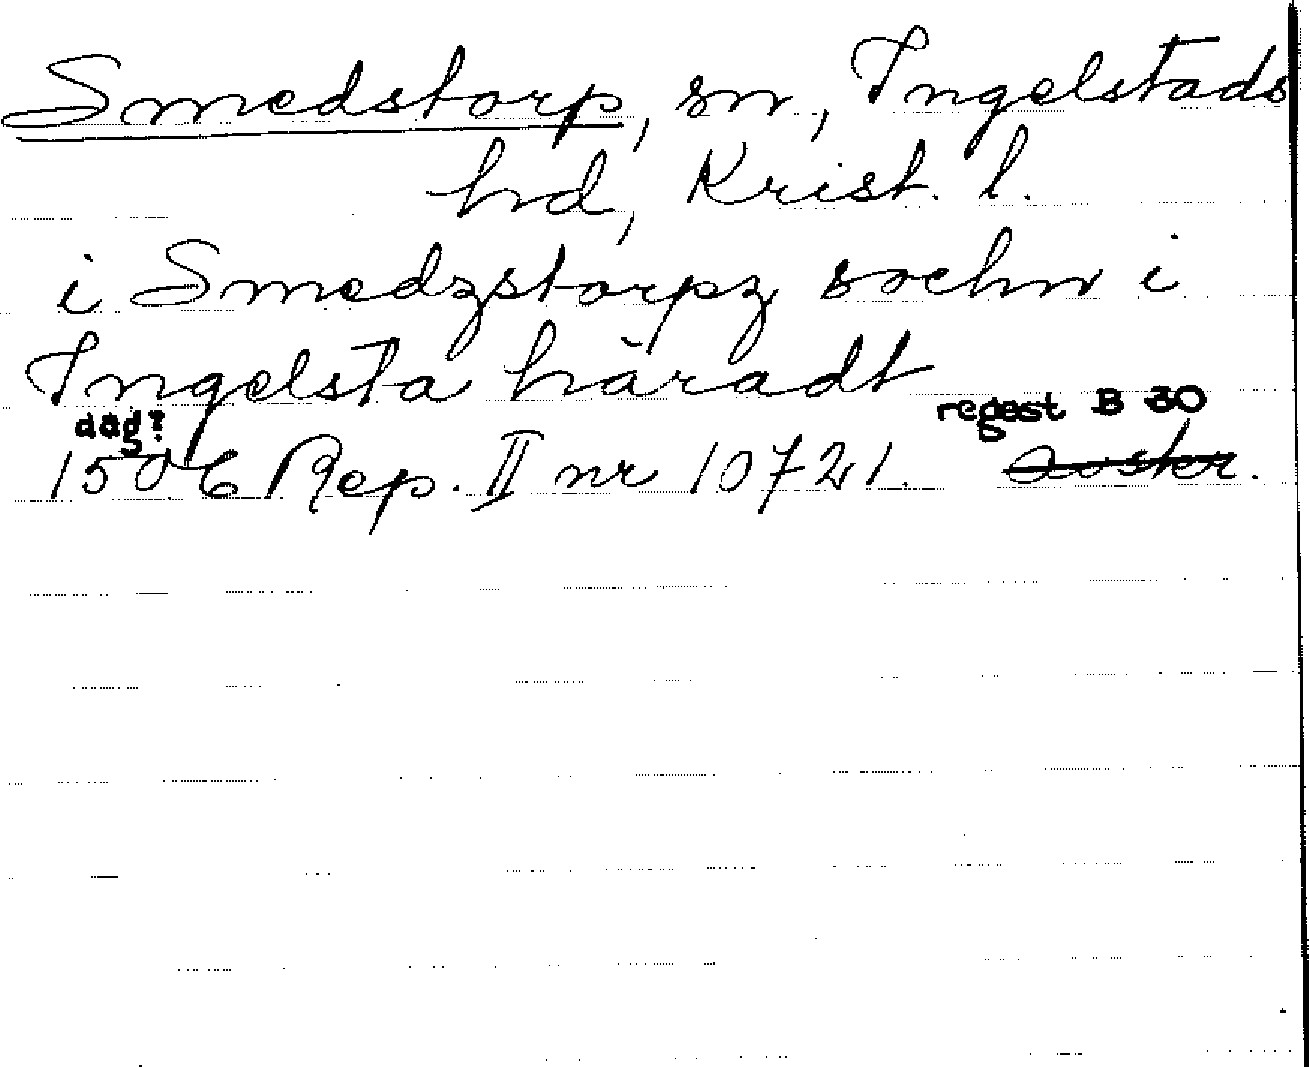 Smedstorp, sn, Ingelstads
hd, Krist. l.
i Smedzstorpz sochn i
Ingelsta häradt
dag? regest B 30
1506 Rep. II nr 10721.